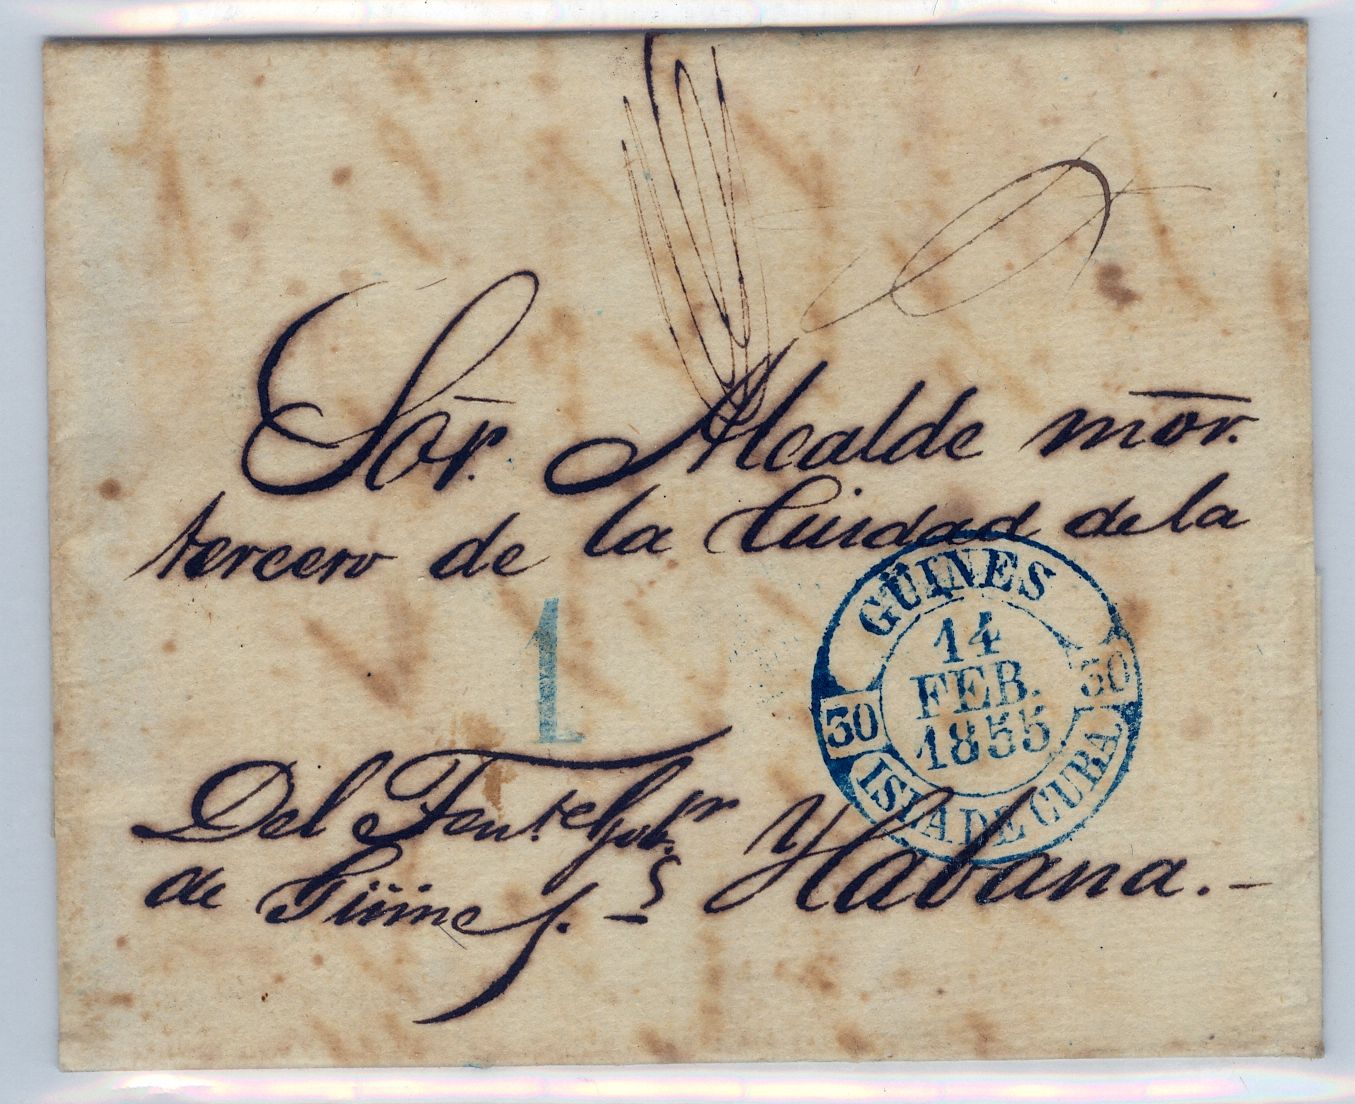 Sōr. Alcalde mōr.
tercero de la Ciudad de la
GÜINES
14
FEB.
1855
30
30
ISLA DE CUBA
1
Del Ten.te Gob.r
de Güines.
Habana.